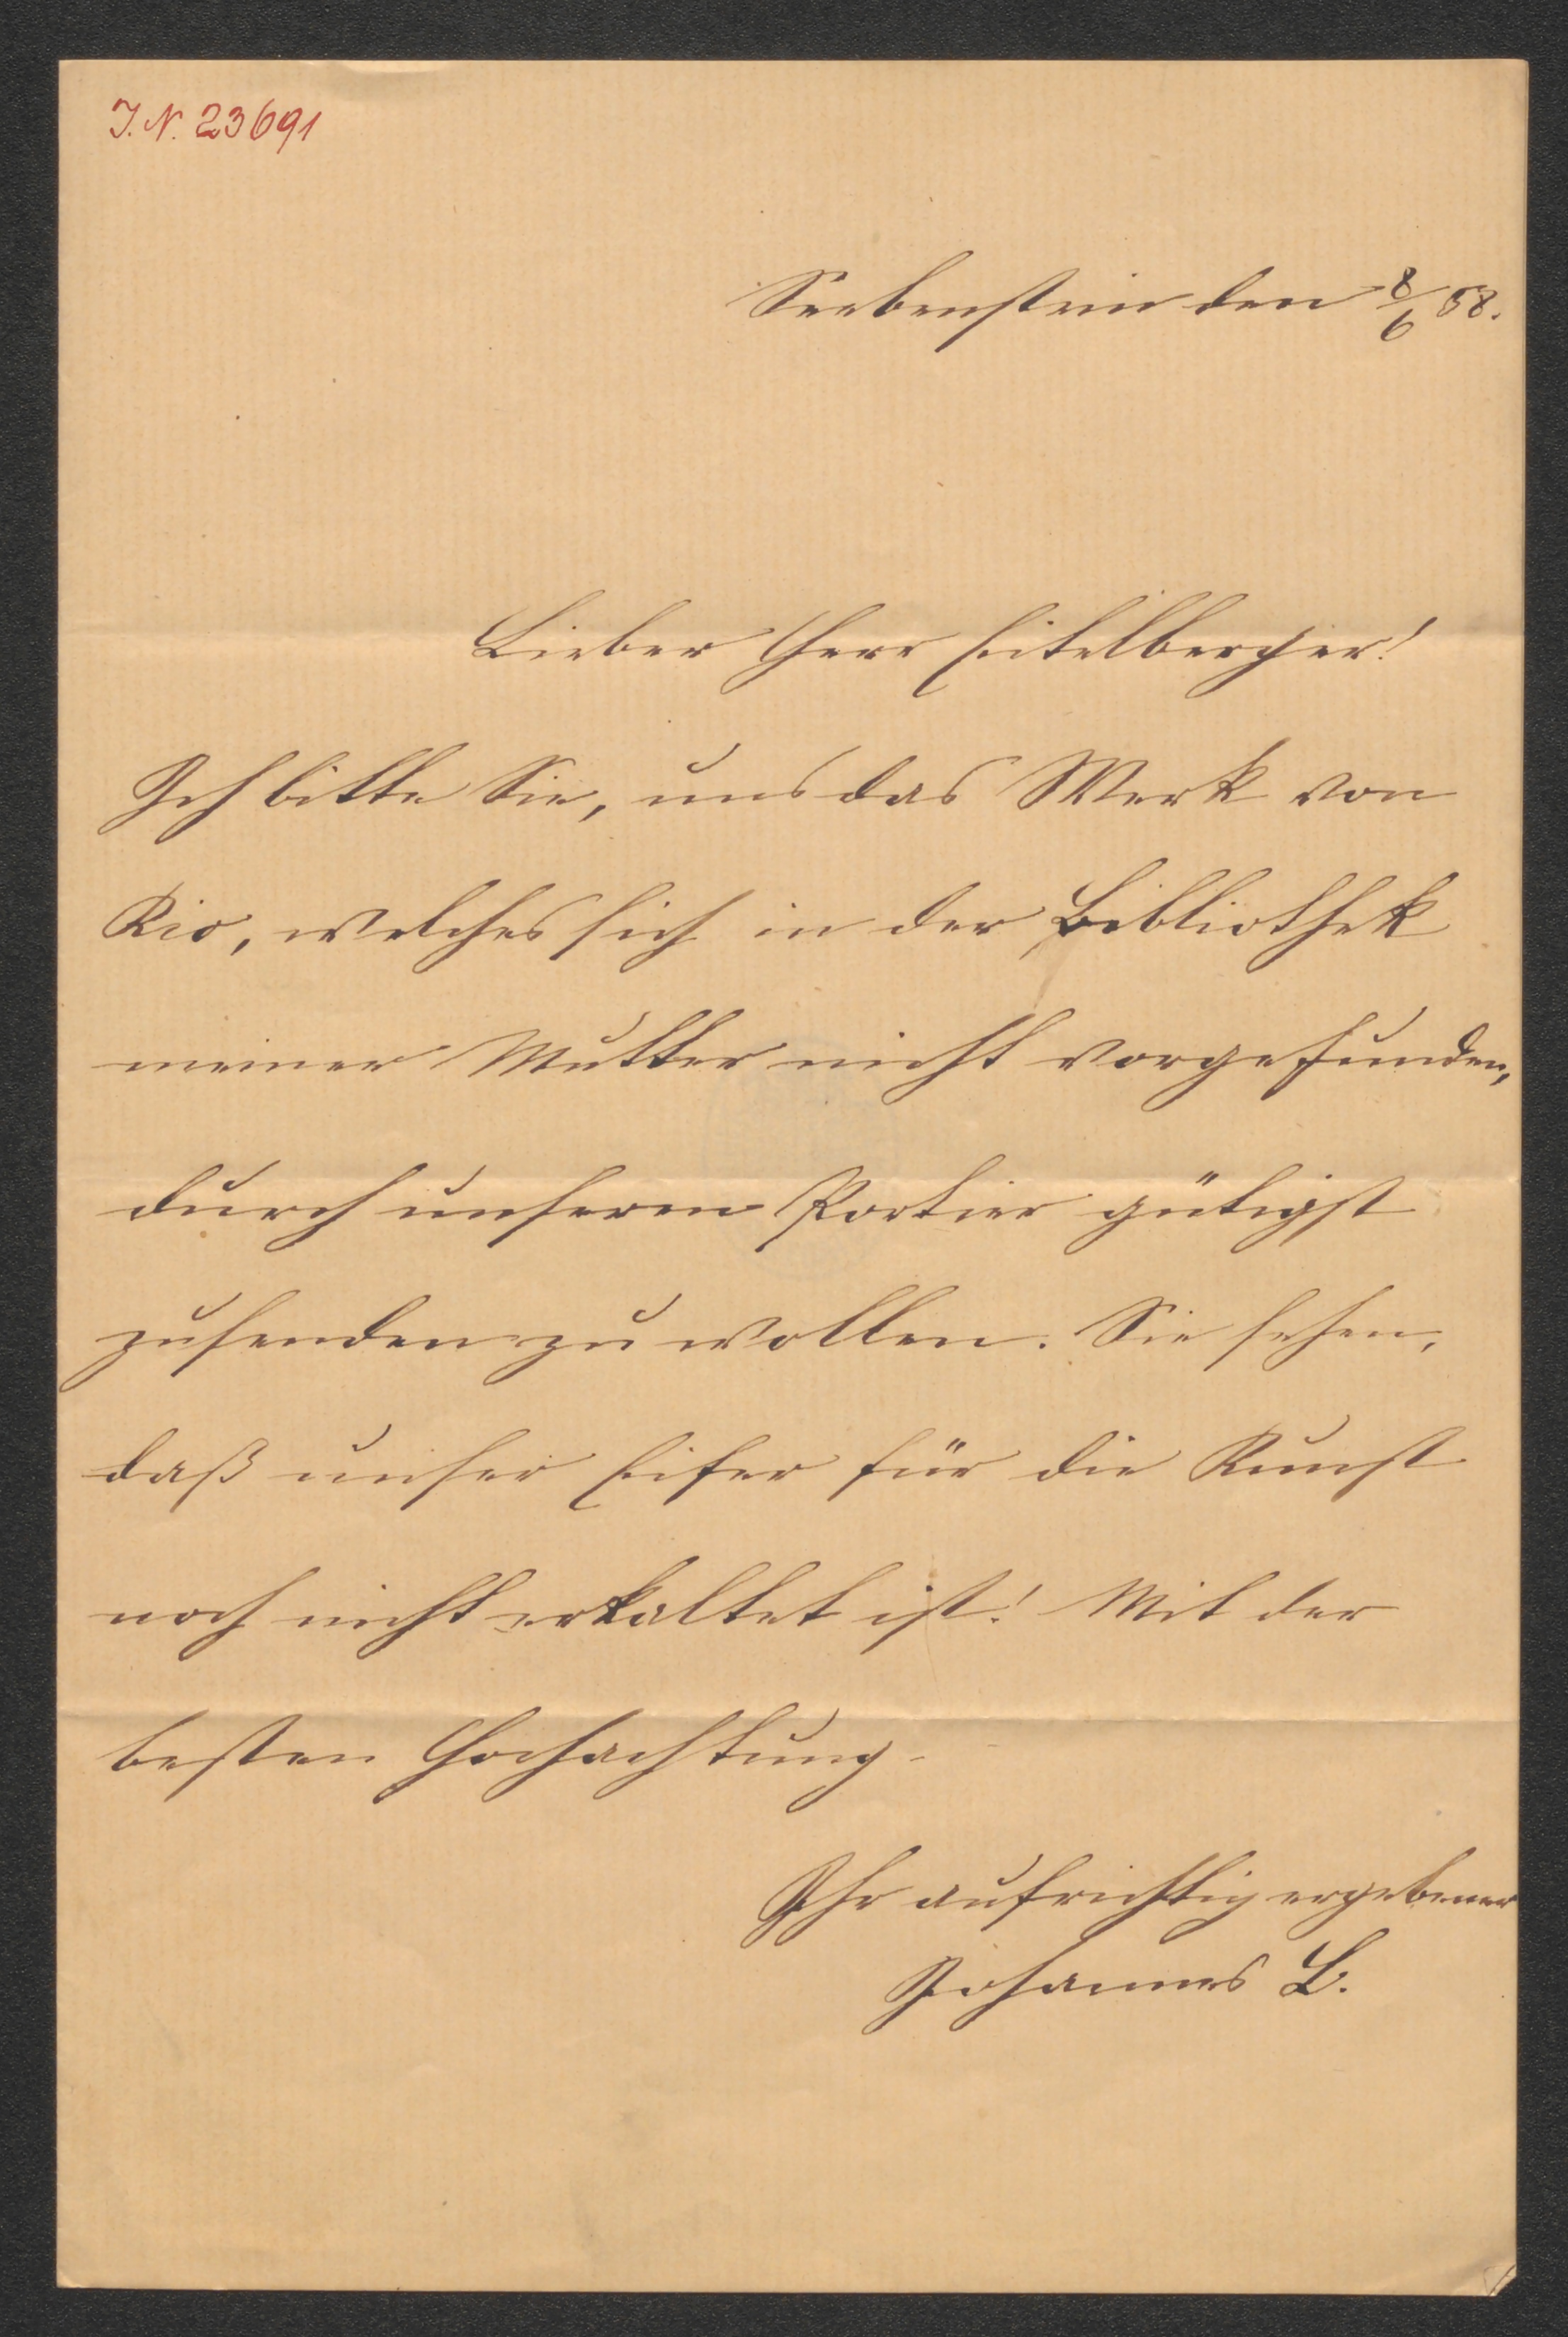 J. N. 23691
Seebenstein den 8/6 58.
Lieber Herr Eitelberger!
Ich bitte Sie, uns das Werk von
Rio, welches sich in der Bibliothek
meiner Mutter nicht vorgefunden,
durch unseren Portier gütigst
zusenden zu wollen. Sie sehen,
daß unser Eifer für die Kunst
noch nicht erkaltet ist! Mit der
besten Hochachtung.
Ihr aufrichtig ergebener
Johannes L.